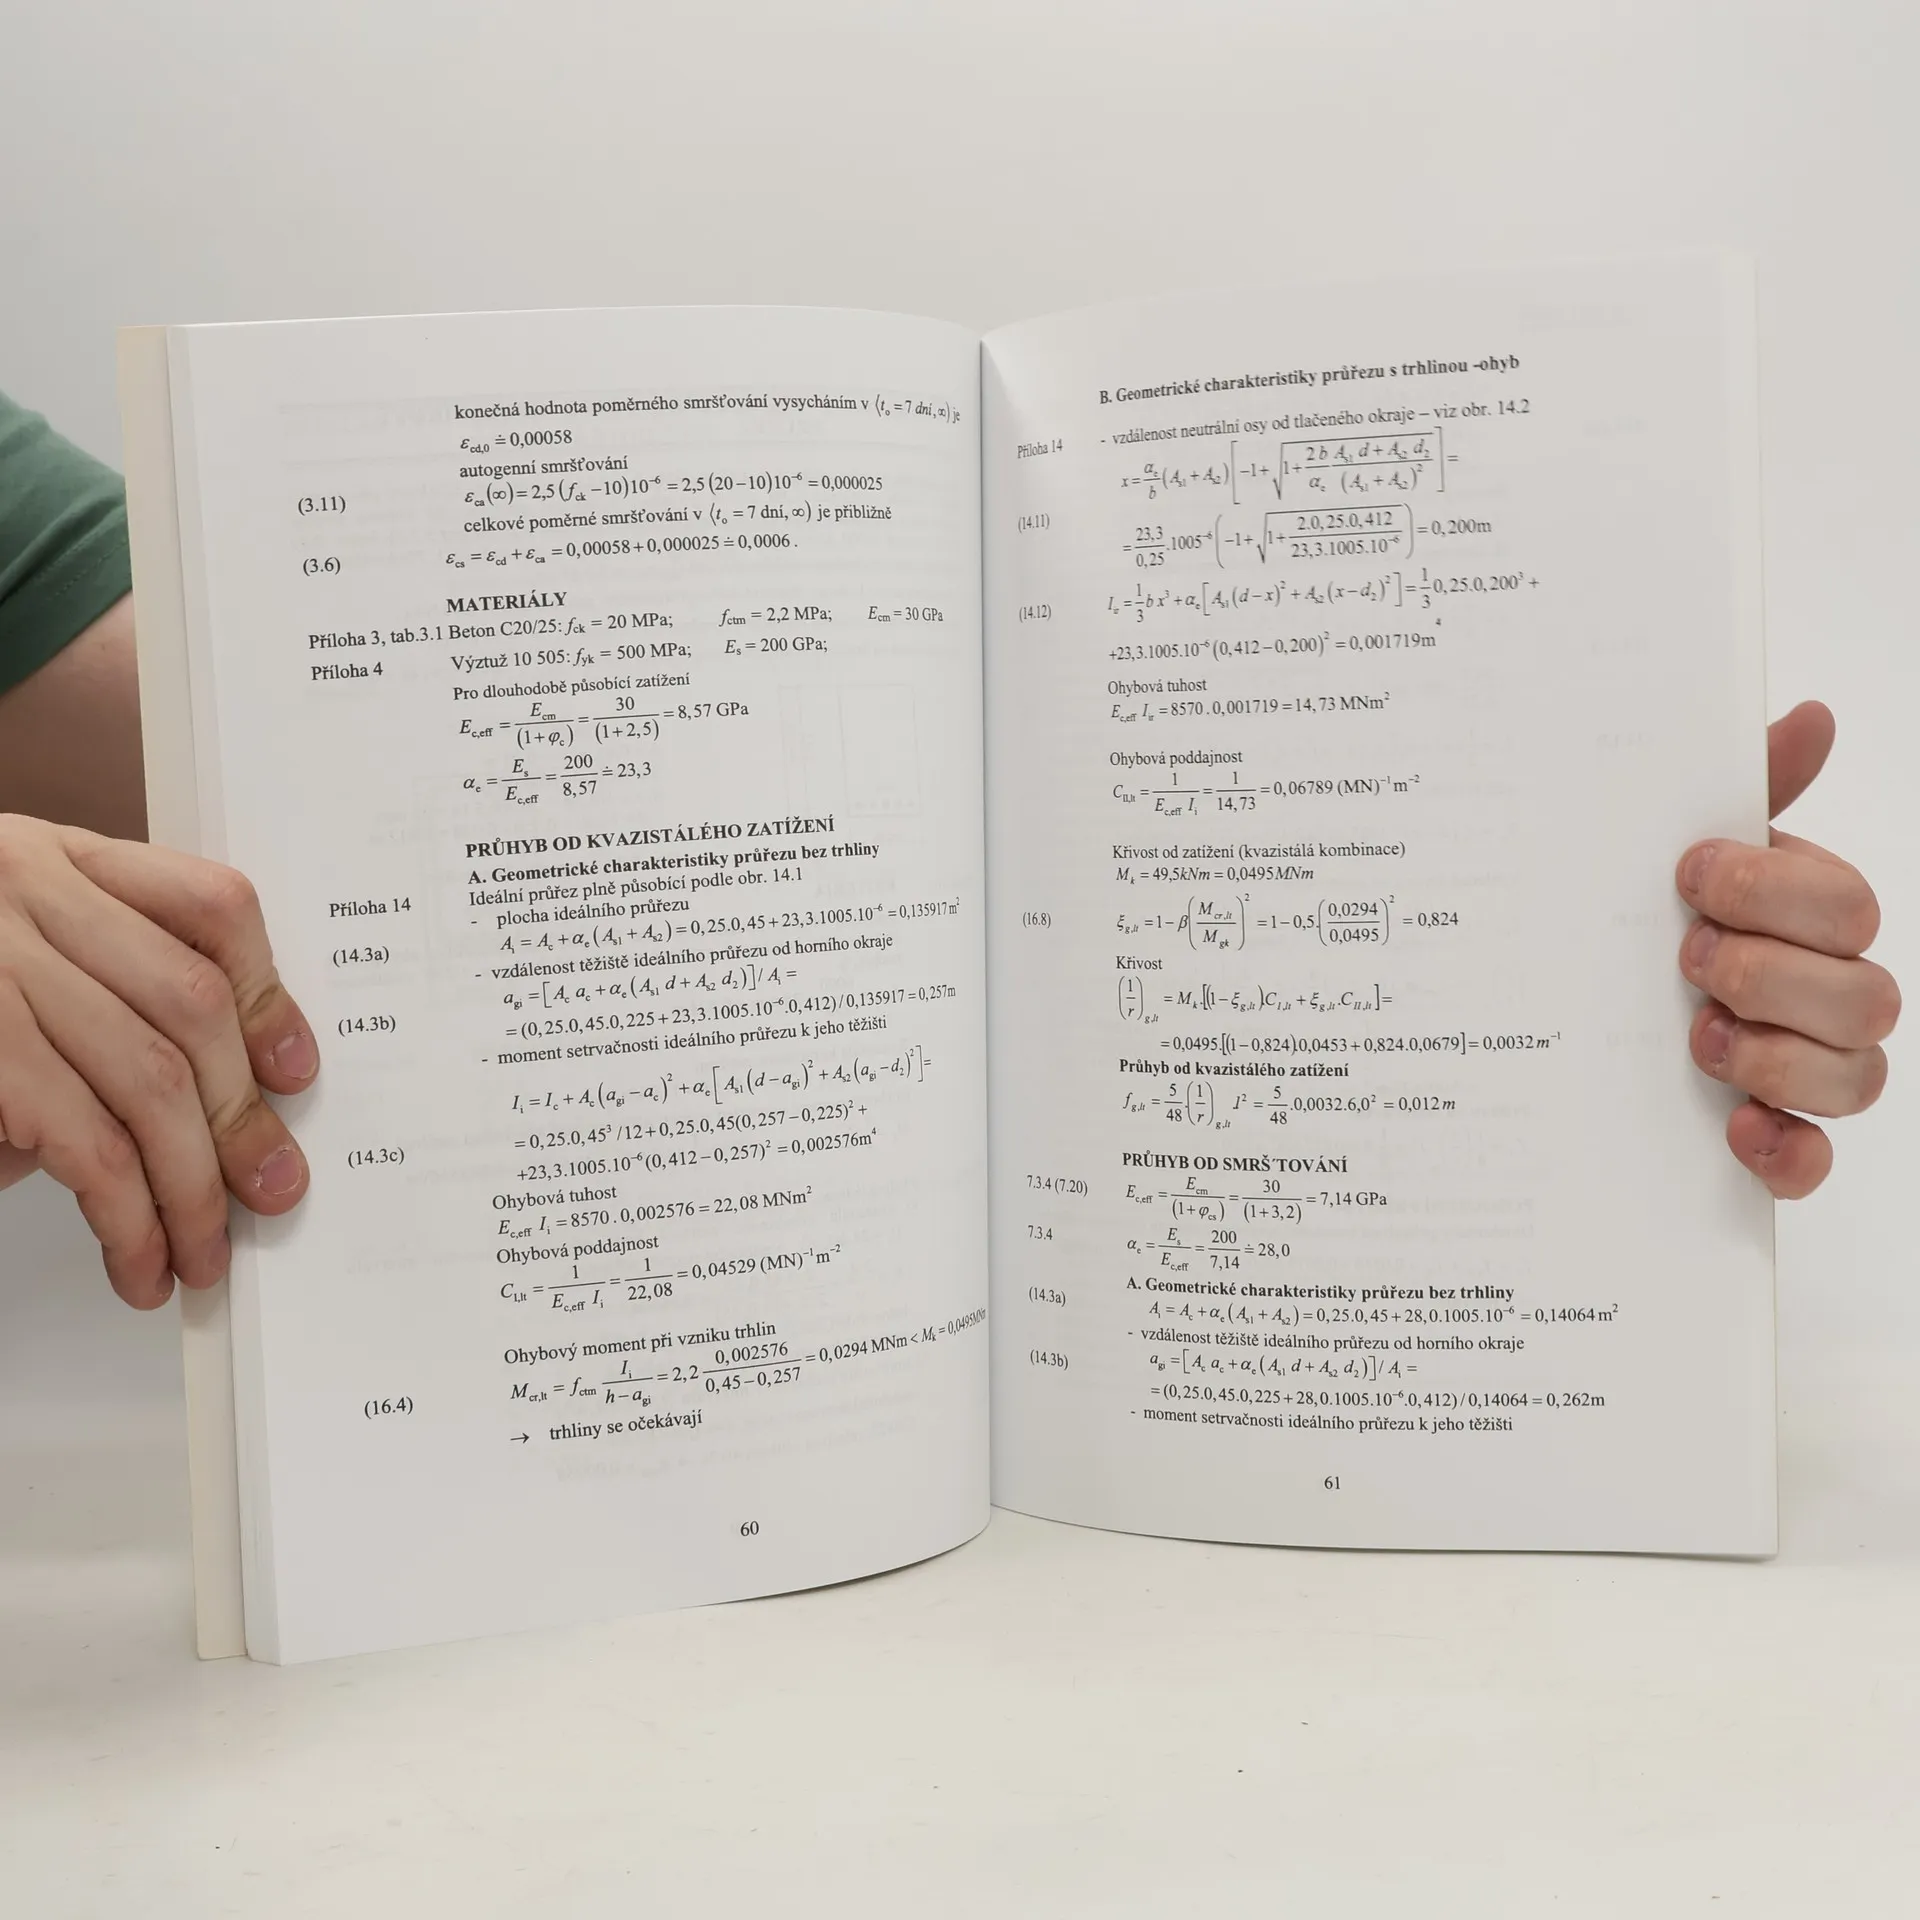 konečná hodnota poměrného smršťování vysycháním v ⟨t₀ = 7 dní, ∞) je
ε_cd,0 ≐ 0,00058
autogenní smršťování
(3.11) ε_ca(∞) = 2,5 (f_ck − 10)10⁻⁶ = 2,5 (20 − 10)10⁻⁶ = 0,000025
celkové poměrné smršťování v ⟨t₀ = 7 dní, ∞) je přibližně
(3.6) ε_cs = ε_cd + ε_ca = 0,00058 + 0,000025 ≐ 0,0006 .
MATERIÁLY
Příloha 3, tab.3.1 Beton C20/25: f_ck = 20 MPa; f_ctm = 2,2 MPa; E_cm = 30 GPa
Příloha 4 Výztuž 10 505: f_yk = 500 MPa; E_s = 200 GPa;
Pro dlouhodobě působící zatížení
E_c,eff = E_cm / (1+φ_c) = 30 / (1+2,5) = 8,57 GPa
α_e = E_s / E_c,eff = 200 / 8,57 ≐ 23,3
PRŮHYB OD KVAZISTÁLÉHO ZATÍŽENÍ
A. Geometrické charakteristiky průřezu bez trhliny
Příloha 14 Ideální průřez plně působící podle obr. 14.1
- plocha ideálního průřezu
(14.3a) A_i = A_c + α_e (A_s1 + A_s2) = 0,25.0,45 + 23,3.1005.10⁻⁶ = 0,135917 m²
- vzdálenost těžiště ideálního průřezu od horního okraje
(14.3b) a_gi = [A_c a_c + α_e (A_s1 d + A_s2 d₂)] / A_i =
= (0,25.0,45.0,225 + 23,3.1005.10⁻⁶.0,412) / 0,135917 = 0,257m
- moment setrvačnosti ideálního průřezu k jeho těžišti
I_i = I_c + A_c (a_gi − a_c)² + α_e [A_s1 (d − a_gi)² + A_s2 (a_gi − d₂)²] =
(14.3c) = 0,25.0,45³ /12 + 0,25.0,45(0,257 − 0,225)² +
+23,3.1005.10⁻⁶ (0,412 − 0,257)² = 0,002576m⁴
Ohybová tuhost
E_c,eff I_i = 8570 . 0,002576 = 22,08 MNm²
Ohybová poddajnost
C_I,lt = 1 / (E_c,eff I_i) = 1 / 22,08 = 0,04529 (MN)⁻¹ m⁻²
Ohybový moment při vzniku trhlin
(16.4) M_cr,lt = f_ctm I_i / (h − a_gi) = 2,2 0,002576 / (0,45 − 0,257) = 0,0294 MNm < M_k = 0,0495MNm
→ trhliny se očekávají
60
B. Geometrické charakteristiky průřezu s trhlinou -ohyb
Příloha 14 - vzdálenost neutrální osy od tlačeného okraje – viz obr. 14.2
x = α_e / b (A_s1 + A_s2) [−1 + √(1 + 2 b / α_e (A_s1 d + A_s2 d₂) / (A_s1 + A_s2)²)] =
(14.11) = 23,3 / 0,25 .1005⁻⁶ (−1 + √(1 + 2.0,25.0,412 / 23,3.1005.10⁻⁶)) = 0,200m
(14.12) I_ir = 1/3 b x³ + α_e [A_s1 (d − x)² + A_s2 (x − d₂)²] = 1/3 0,25.0,200³ +
+23,3.1005.10⁻⁶ (0,412 − 0,200)² = 0,001719m⁴
Ohybová tuhost
E_c,eff I_ir = 8570 . 0,001719 = 14,73 MNm²
Ohybová poddajnost
C_II,lt = 1 / (E_c,eff I_i) = 1 / 14,73 = 0,06789 (MN)⁻¹ m⁻²
Křivost od zatížení (kvazistálá kombinace)
M_k = 49,5kNm = 0,0495MNm
(16.8) ξ_g,lt = 1 − β (M_cr,lt / M_gk)² = 1 − 0,5.(0,0294 / 0,0495)² = 0,824
Křivost
(1/r)_g,lt = M_k.[(1 − ξ_g,lt).C_I,lt + ξ_g,lt.C_II,lt] =
= 0,0495.[(1 − 0,824).0,0453 + 0,824.0,0679] = 0,0032 m⁻¹
Průhyb od kvazistálého zatížení
f_g,lt = 5/48 (1/r)_g,lt l² = 5/48 .0,0032.6,0² = 0,012 m
PRŮHYB OD SMRŠ´TOVÁNÍ
7.3.4 (7.20) E_c,eff = E_cm / (1+φ_cs) = 30 / (1+3,2) = 7,14 GPa
7.3.4 α_e = E_s / E_c,eff = 200 / 7,14 ≐ 28,0
A. Geometrické charakteristiky průřezu bez trhliny
(14.3a) A_i = A_c + α_e (A_s1 + A_s2) = 0,25.0,45 + 28,0.1005.10⁻⁶ = 0,14064 m²
- vzdálenost těžiště ideálního průřezu od horního okraje
(14.3b) a_gi = [A_c a_c + α_e (A_s1 d + A_s2 d₂)] / A_i =
= (0,25.0,45.0,225 + 28,0.1005.10⁻⁶.0,412) / 0,14064 = 0,262m
- moment setrvačnosti ideálního průřezu k jeho těžišti
61